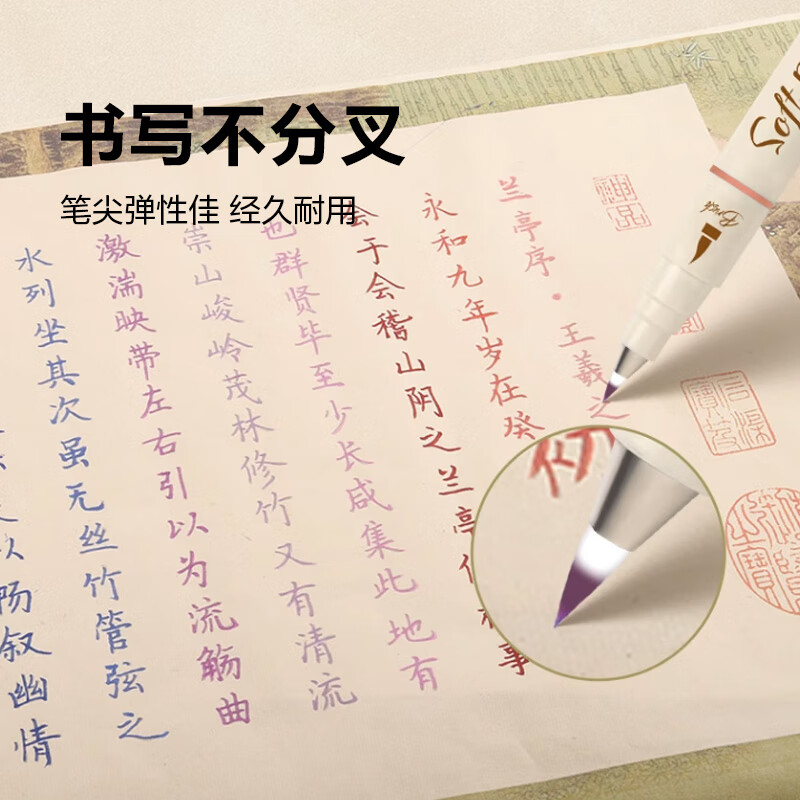 书写不分叉
笔尖弹性佳 经久耐用
Soft
Brush
兰亭序·王羲之
永和九年岁在癸
会于会稽山阴之兰亭
事
也群贤毕至少长咸集此地有
崇山峻岭茂林修竹又有清流
激湍映带左右引以为流觞曲
水列坐其次虽无丝竹管弦之
叙幽情